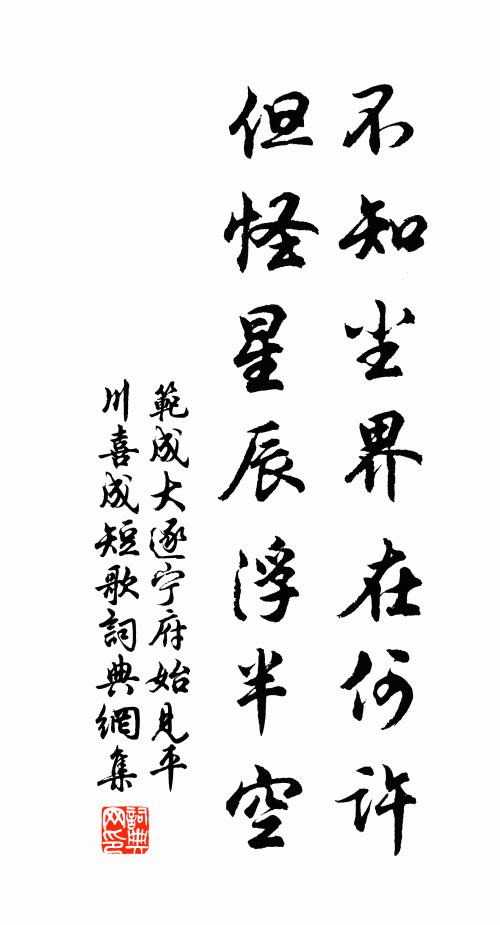 不知尘界在何许
但怪星辰浮半空
範成大遂宁府始見平
川喜成短歌詞典網集
詞典网印